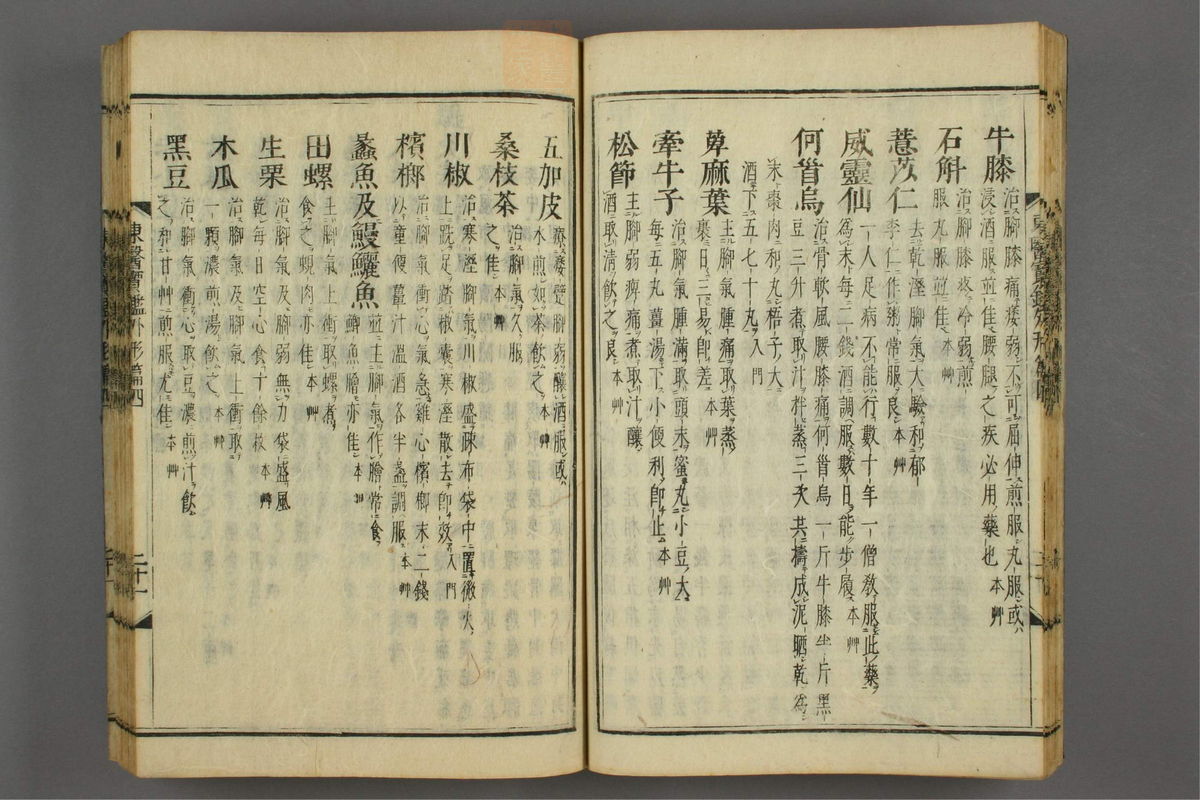 牛膝 治腳膝痛痿弱不可屈伸煎服丸服或
浸酒服並佳腰腿之疾必用藥也 本艸
石斛 治腳膝疼冷弱煎
服丸服並佳 本艸
薏苡仁 去乾溼腳氣大驗和郁
李仁作粥常服良 本艸
威靈仙 一人足病不能行數十年一僧敎服此藥
爲末每二錢酒調服數日能步履 本艸
何首烏 治骨軟風腰膝痛何首烏一斤牛膝半斤黑
豆三升煮取汁拌蒸三次共擣成泥晒乾爲
末棗肉和丸梧子大
酒下五七十丸 入門
萆麻葉 主腳氣腫痛取葉蒸
裹日三易卽差 本艸
牽牛子 治腳氣腫滿取頭末蜜丸小豆大
每五丸薑湯下小便利卽止 本艸
松節 主腳弱痺痛煮取汁釀
酒取淸飮之良 本艸
五加皮 療痿躄腳弱釀酒服或
水煎如茶飮之 本艸
桑枝茶 治腳氣久服
之佳 本艸
川椒 治寒溼腳氣川椒盛疎布袋中置微火
上跣足踏椒囊寒溼散去卽效 入門
檳榔 治腳氣衝心氣急雞心檳榔末二錢
以童便薑汁溫酒各半盞調服 本艸
蠡魚及鰻鱺魚 並主腳氣作膾常食
鯽膾亦佳 本艸
田螺 主腳氣上衝取螺煮
食之蜆肉亦佳 本艸
生栗 治腳氣及腳弱無力袋盛風
乾每日空心食十餘枚 本艸
木瓜 治腳氣及腳氣上衝取
一顆濃煎湯飮之 本艸
黑豆 治腳氣衝心取豆濃煎汁飮
之和甘艸煎服尤佳 本艸
東醫寶鑑外形篇四
二十一